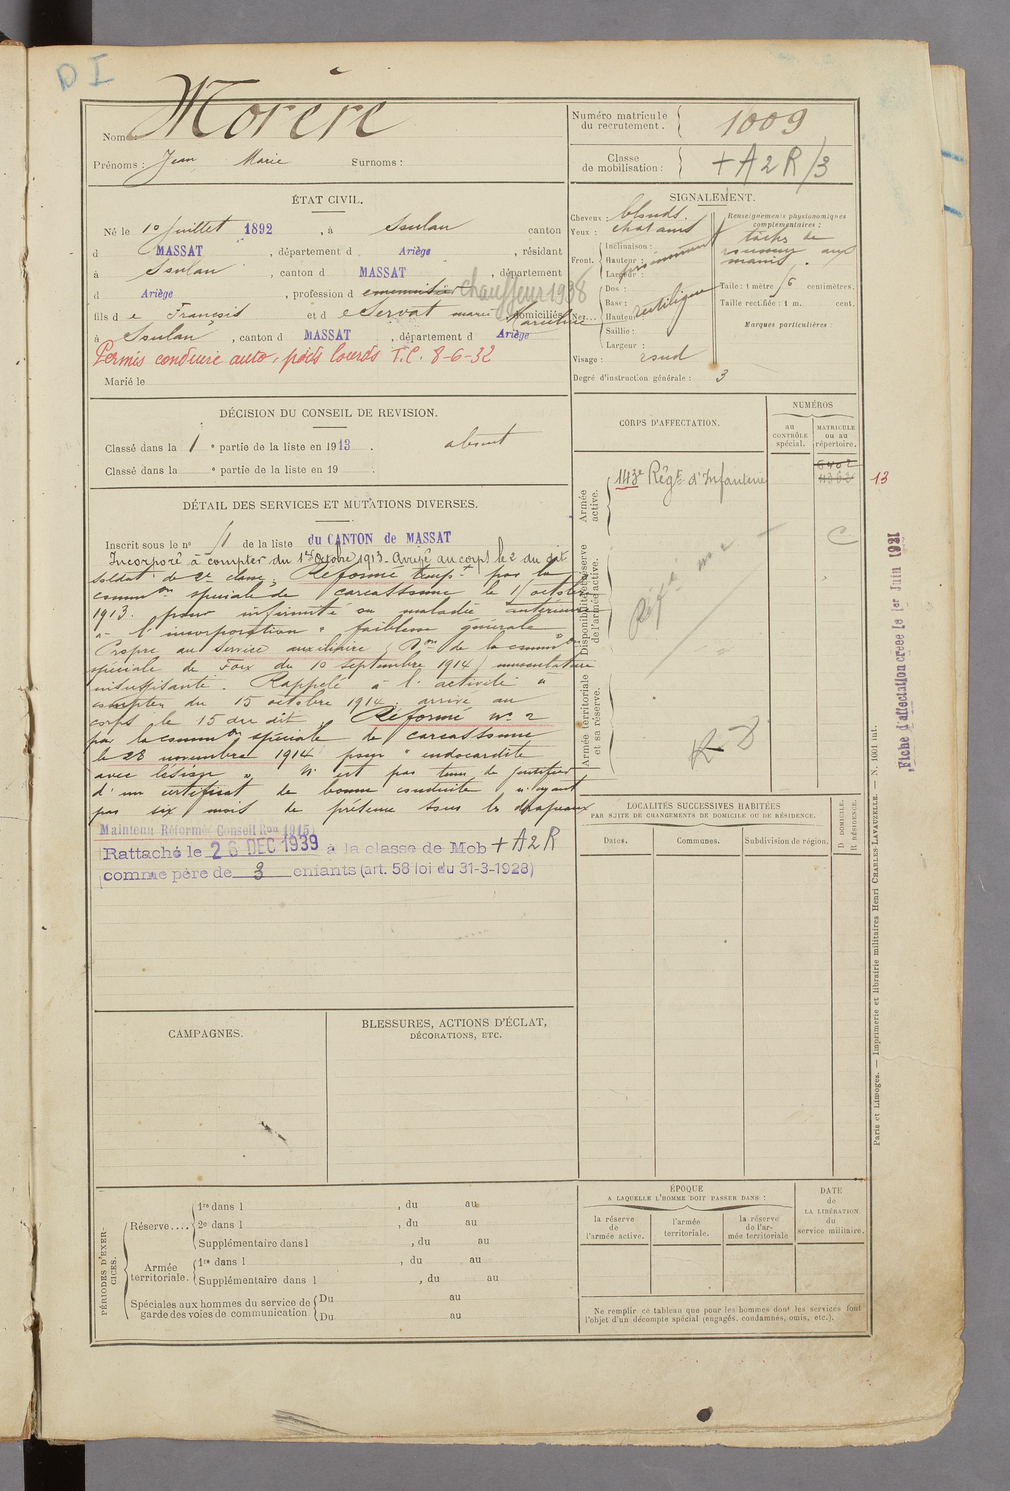 D I
Nom Morère
Prénoms : Jean Marie Surnoms :
Numéro matricule
du recrutement. 1009
Classe
de mobilisation : + A 2 R /3
ÉTAT CIVIL.
Né le 10 juillet 1892, à Soulan canton
d MASSAT, département d Ariège, résidant
à Soulan, canton d MASSAT, département
d Ariège, profession d chauffeur 1938
fils d e François et d e Servat marie domiciliés
à Soulan, canton d MASSAT, département d Ariège
Permis conduire auto, poids lourds T.C. 8-6-32
Marié le
SIGNALEMENT.
Cheveux : blonds.
Yeux : chatains
Front. Inclinaison :
Hauteur : proéminent
Largeur :
Nez... Dos :
Base :
Hauteur rectiligne
Saillie :
Largeur :
Visage : rond
Renseignements physionomiques
complémentaires :
tâches de
rousseur aux
mains.
Taille : 1 mètre centimètres.
Taille rectifiée : 1 m. cent.
Marques particulières :
Degré d'instruction générale : 3
DÉCISION DU CONSEIL DE REVISION.
Classé dans la 1 e partie de la liste en 1913. absent
Classé dans la e partie de la liste en 19 .
DÉTAIL DES SERVICES ET MUTATIONS DIVERSES.
Inscrit sous le no de la liste du CANTON de MASSAT
Incorporé à compter du 1er Octobre 1913. Arrivé au corps le 2 du dit
soldat de 2e classe, Réformé temp.t par la
common spéciale de Carcassonne le octobre
1913. pour infirmité ou maladie antérieure
à l'incorporation " faiblesse générale "
Propre au Service auxiliaire Don de la common
spéciale de Foix du 10 septembre 1914, musculature
insuffisante. Rappelé à l'activité à
compter du 15 octobre 1914, arrivé au
corps le 15 du dit. Réformé no 2
par la common spéciale de Carcassonne
le 28 novembre 1914 pour " endocardite
avec lésion ". N'est pas tenu de justifier
d'un certificat de bonne conduite n'ayant
pas six mois de présence sous les drapeaux
Maintenu Réformé Conseil Ron 1915
Rattaché le 26 DEC 1939 à la classe de Mob + A2R
comme père de 3 enfants (art. 58 loi du 31-3-1928)
CORPS D'AFFECTATION.
NUMÉROS
au
CONTRÔLE
spécial.
MATRICULE
ou au
répertoire.
Armée
active.
143e Régt d'Infanterie
13
C
Disponibilité et réserve
de l'armée active.
Réfé no 2
Armée territoriale
et sa réserve.
R D
LOCALITÉS SUCCESSIVES HABITÉES
PAR SUITE DE CHANGEMENTS DE DOMICILE OU DE RÉSIDENCE.
Dates. Communes. Subdivision de région.
D. DOMICILE.
R. RÉSIDENCE.
CAMPAGNES.
BLESSURES, ACTIONS D'ÉCLAT,
DÉCORATIONS, ETC.
PÉRIODES D'EXERCICES.
Réserve.... 1re dans l , du au
2e dans l , du au
Supplémentaire dans l , du au
Armée
territoriale. 1re dans l , du au
Supplémentaire dans l , du au
Spéciales aux hommes du service de
garde des voies de communication Du au
Du au
ÉPOQUE
A LAQUELLE L'HOMME DOIT PASSER DANS :
la réserve
de
l'armée active.
l'armée
territoriale.
la réserve
de l'ar-
mée territoriale
DATE
de
LA LIBÉRATION
du
service militaire.
Ne remplir ce tableau que pour les hommes dont les services font
l'objet d'un décompte spécial (engagés, condamnés, omis, etc.).
Paris et Limoges. — Imprimerie et librairie militaires Henri CHARLES-LAVAUZELLE. — N. 1001 int.
Fiche d'affectation créée le 1er Juin 1921